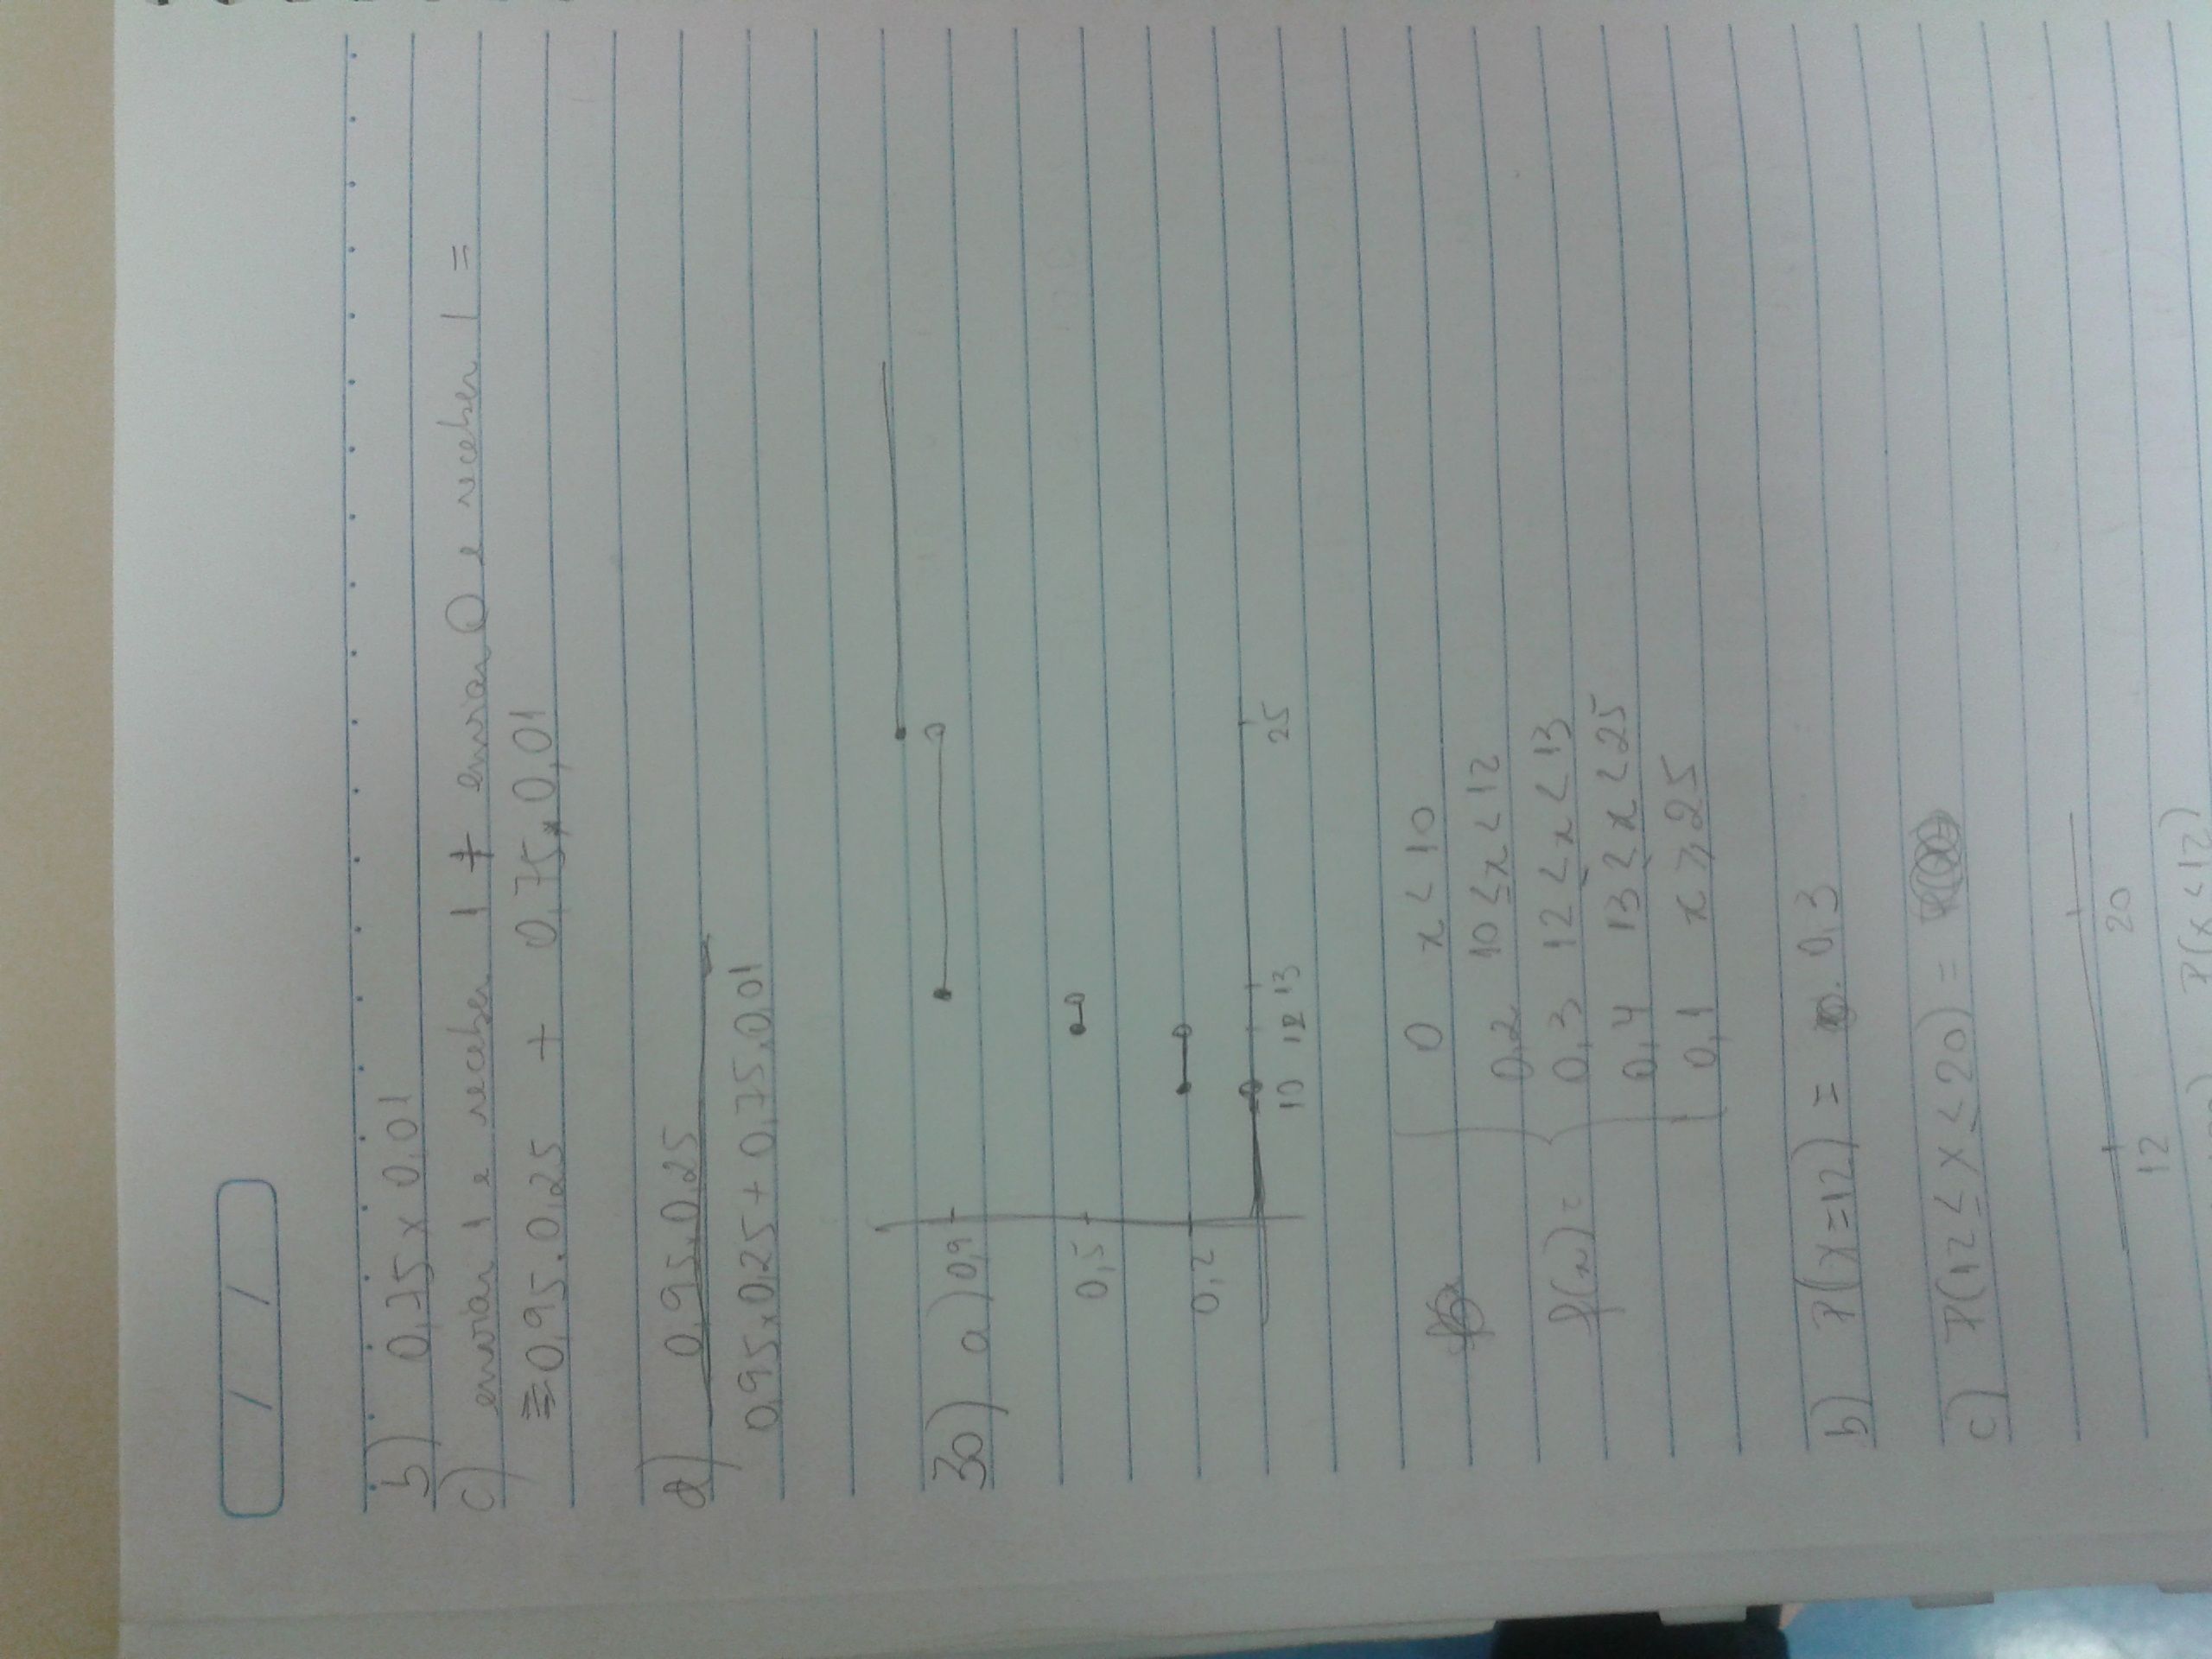 / /
b) 0,75 x 0,01
c) enviar 1 e receber 1 + enviar 0 e receber 1 =
= 0,95.0,25 + 0,75x0,01
d) 0,95.0,25
0,95x0,25 + 0,75.0,01
30) a) 0,9
0,5
0,2
10 12 13 25
0 x < 10
0,2 10 ≤ x < 12
f(x) = 0,3 12 ≤ x < 13
0,4 13 ≤ x < 25
0,1 x ≥ 25
b) P(X=12) = 0,3
c) P(12 ≤ X ≤ 20) =
12 20
P(X<12)